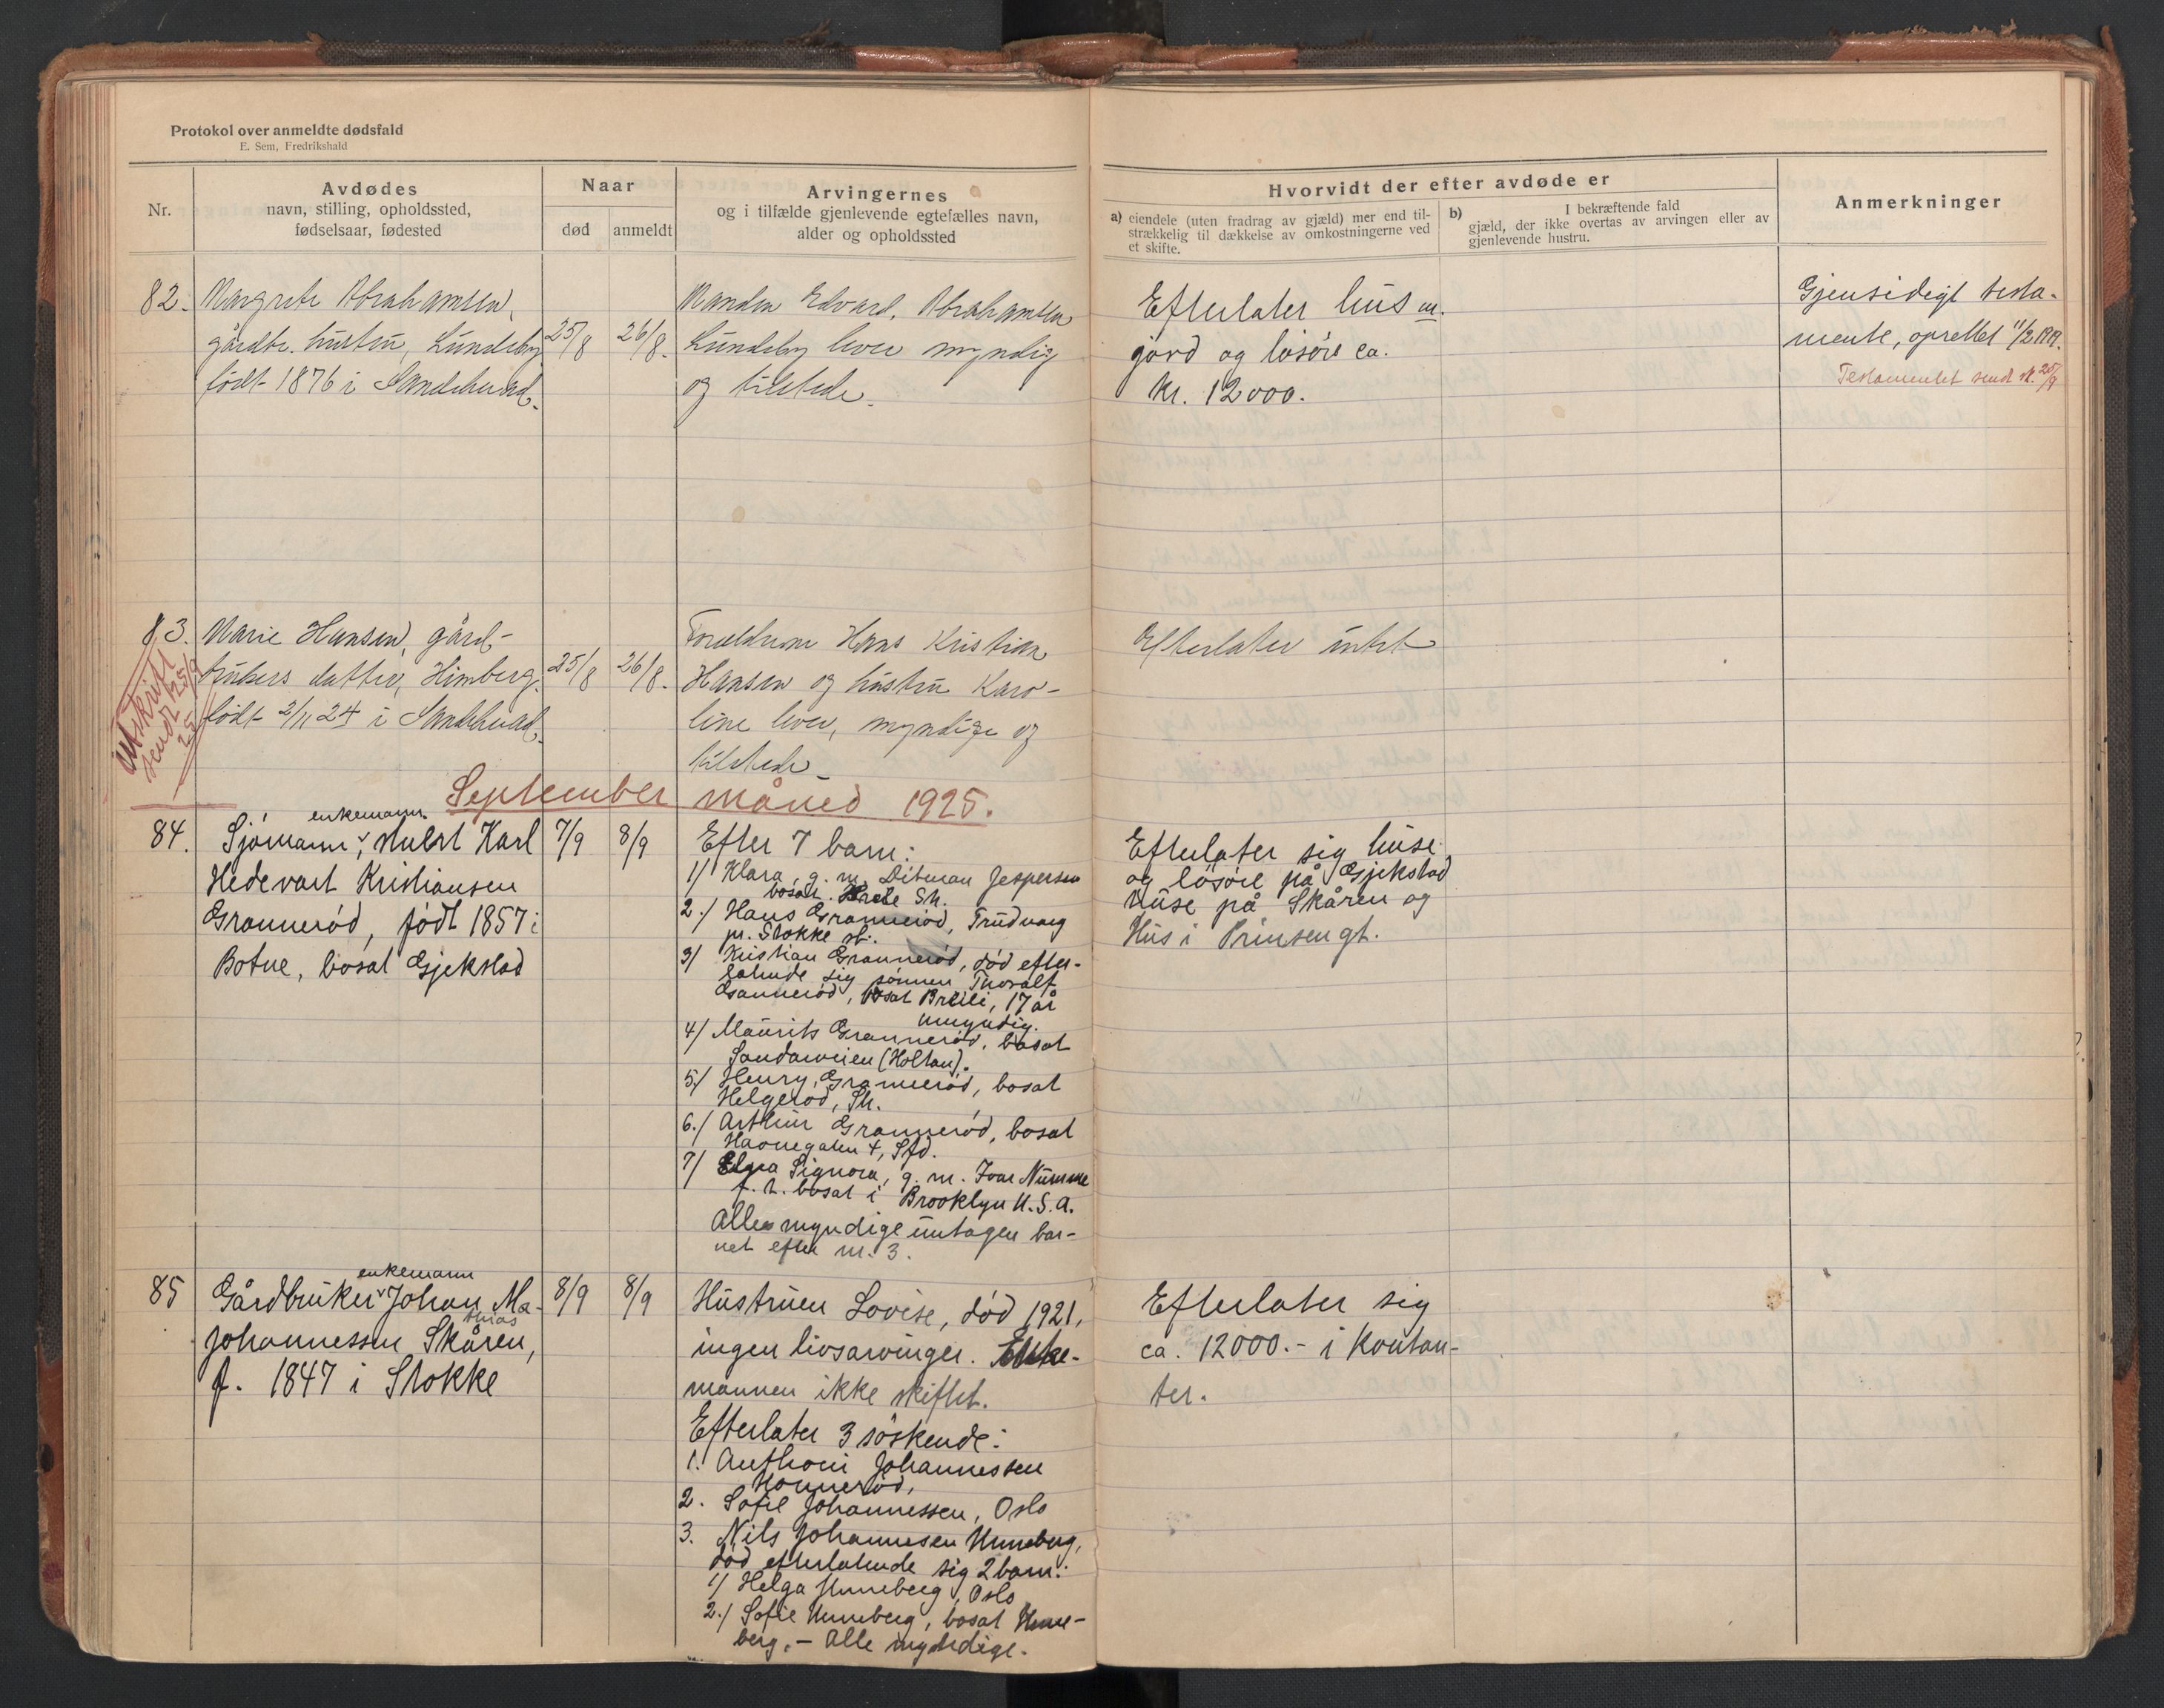 Protokol over anmeldte dødsfald
E. Sem, Fredrikshald
Nr.
Avdødes
navn, stilling, opholdssted,
fødselsaar, fødested
Naar
død
anmeldt
Arvingernes
og i tilfælde gjenlevende egtefælles navn,
alder og opholdssted
Hvorvidt der efter avdøde er
a) eiendele (uten fradrag av gjæld) mer end til-
strækkelig til dækkelse av omkostningerne ved
et skifte.
b) I bekræftende fald
gjæld, der ikke overtas av arvingen eller av
gjenlevende hustru.
Anmerkninger
82. Margrete Abrahamsen,
gårdbr. hustru, Lundeby
født 1876 i Sandeherad.
25/8
26/8.
Manden Edvard Abrahamsen
Lundeby lever myndig
og tilstede.
Efterlater hus m.
jord og løsøre ca.
Kr. 12000.
Gjensidigt testa-
mente, oprettet 11/2
Testamentet sendt 25/9
83. Marie Hansen, gård-
brukers datter, Himberg.
født 2/11 24 i Sandeherad.
25/8
26/8.
Forældrene Hans Kristian
Hansen og hustru Karo-
line lever, myndige og
tilstede.
Efterlater intet
utskrift
sendt 25/9
25
September måned 1925.
84. Sjømann, enkemann. Karl
Hedevart Kristiansen
Grannerød, født 1857 i
Botne, bosat Gjekstad
7/9
8/9
Efter 7 barn:
1/ Klara, g. m. Ditman Jespersen
bosat Sh.
2./ Hans Grannerød, Trudvang
pr. Stokke st.
3/ Kristian Grannerød, død efter-
latende sig sønnen Thoralf
Grannerød, bosat Breili, 17 år
umyndig.
4/ Maurits Grannerød, bosat
Sandarveien (Holtan).
5/ Henry Grannerød, bosat
Helgerød, Sh.
6./ Arthur Grannerød, bosat
Havnegaten 4, Sfd.
7/ Signora, g. m. Ivar Numme
f. t. bosat i Brooklyn U.S.A.
Alle myndige untagen bar-
net efter nr. 3.
Efterlater sig huse
og løsøre på Gjekstad
huse på Skåren og
Hus i Prinsengt.
85 Gårdbruker enkemann Johan Ma-
thias
Johannessen Skåren,
f. 1847 i Stokke
8/9
8/9
Hustruen Lovise, død 1921,
ingen livsarvinger. Enke-
mannen ikke skiftet.
Efterlater 3 søskende:
1. Anthoni Johannessen
Honnerød,
2. Sofie Johannessen, Oslo
3. Nils Johannesen Unneberg,
død efterlatende sig 2 barn:
1/ Helga Unneberg, Oslo
2./ Sofie Unneberg, bosat Unne-
berg. – Alle myndige.
Efterlater sig
ca. 12000.- i Kontan-
ter.